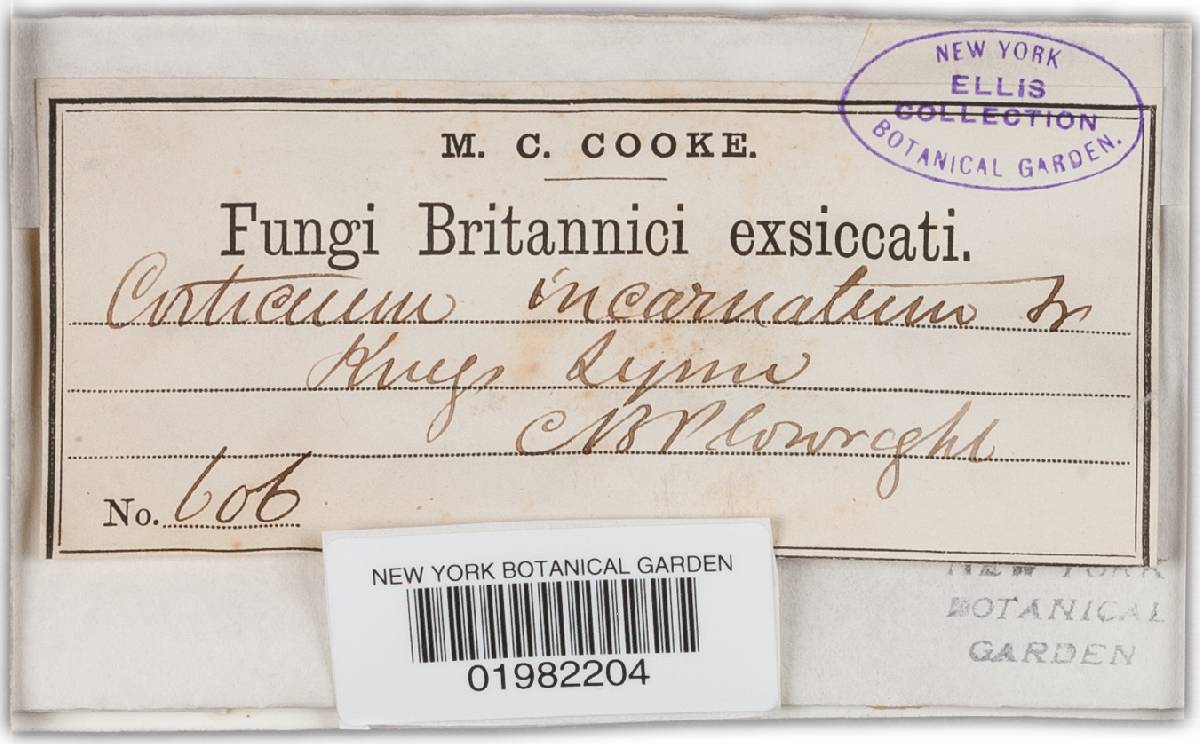 NEW YORK
ELLIS
COLLECTION
BOTANICAL GARDEN.
M. C. COOKE.
Fungi Britannici exsiccati.
Corticium incarnatum Fr
Kings Lynn
C B Plowright
No. 606
NEW YORK
BOTANICAL
GARDEN
NEW YORK BOTANICAL GARDEN
01982204